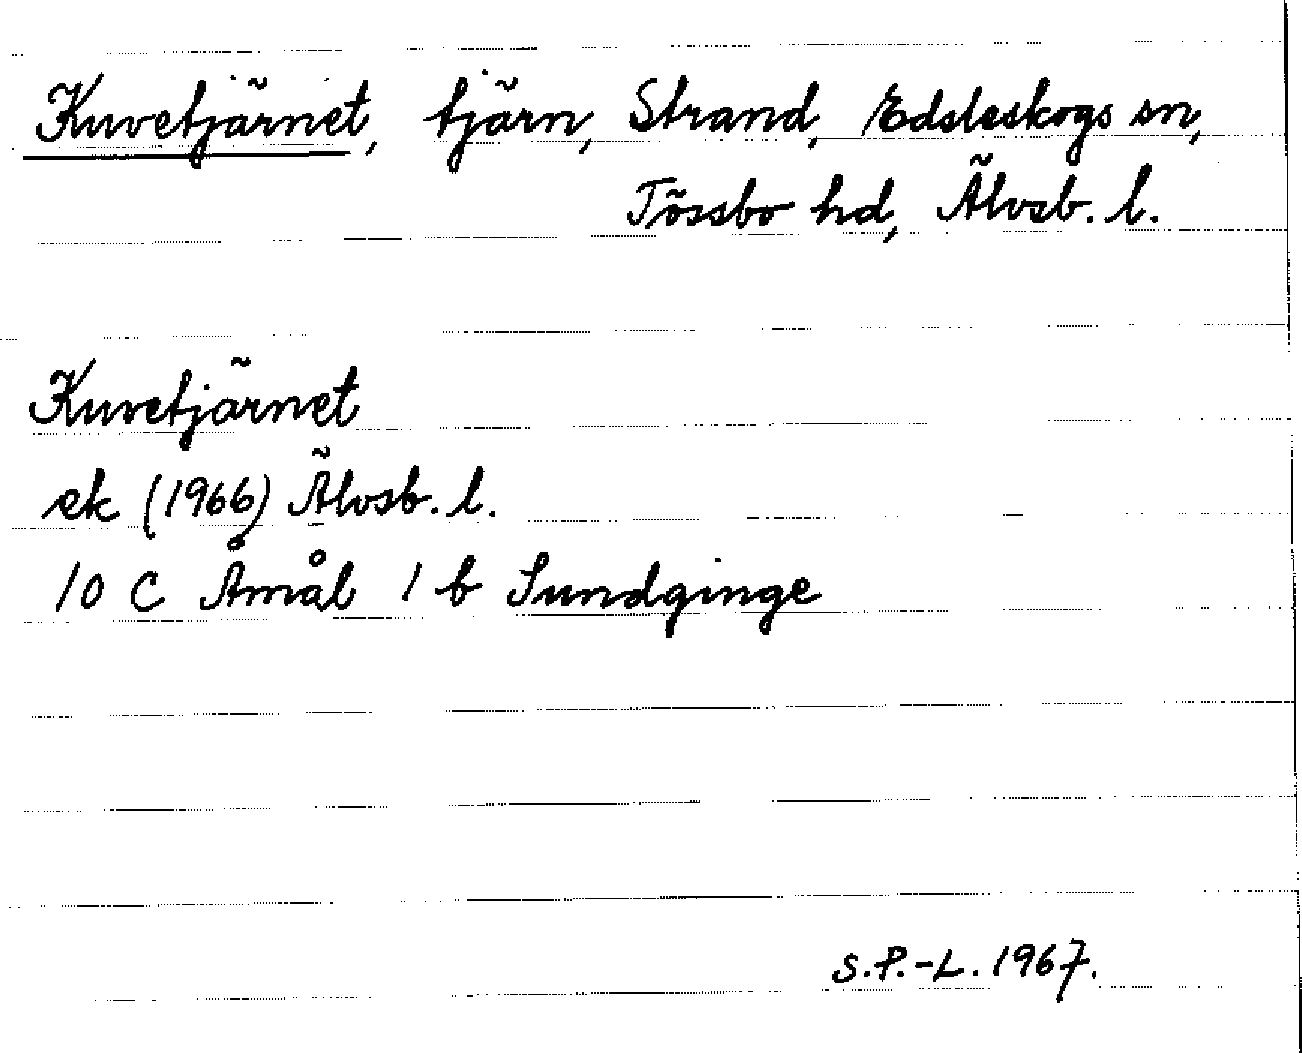 Kuvetjärnet, tjärn, Strand, Edsleskogs sn,
Tössbo hd, Älvsb. l.
Kuvetjärnet
ek (1966) Älvsb. l.
10 C Åmål 1 b Sundginge
S.P.-L. 1967.